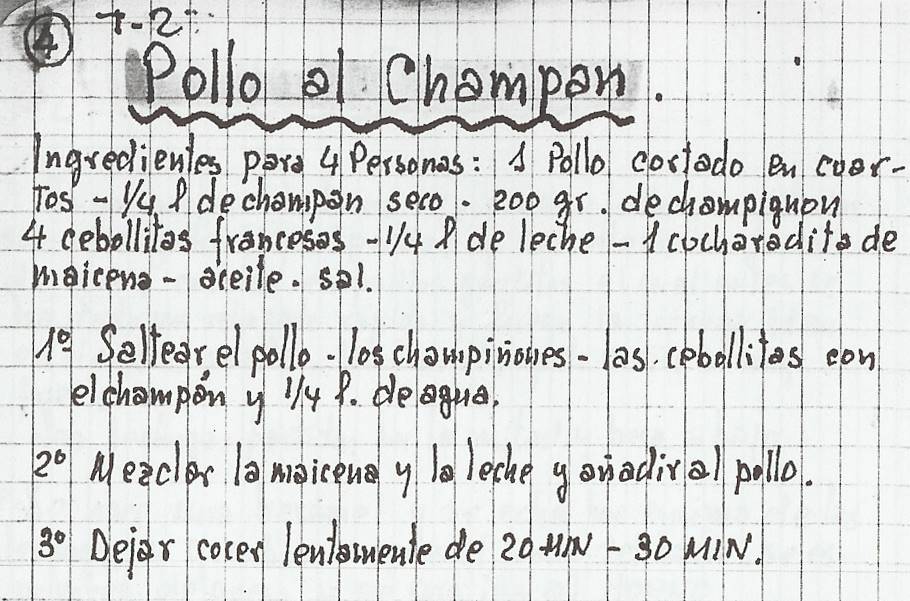 4 T-2
Pollo al Champan.
Ingredientes para 4 Personas: 1 Pollo cortado en cuar-
Tos - 1/4 l de champan seco - 200 gr. de champignon
4 cebollitas francesas - 1/4 l de leche - 1 cucharadita de
maicena - aceite. sal.
1º Saltear el pollo - los champiñones - las cebollitas con
el champán y 1/4 l. de agua.
2º Mezclar la maicena y la leche y añadir al pollo.
3º Dejar cocer lentamente de 20 MIN - 30 MIN.